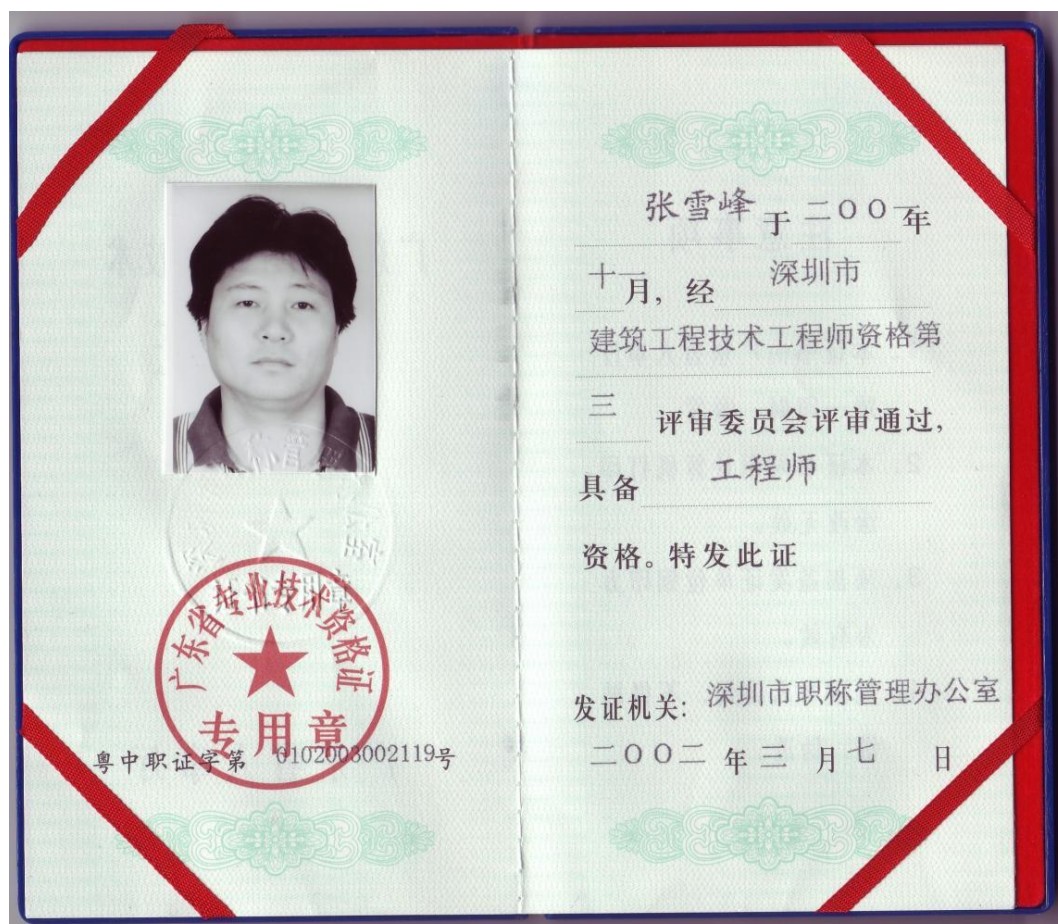 广东省专业技术资格证
专用章
粤中职证字第 0102003002119号
张雪峰 于 二〇〇一年
十一月，经 深圳市
建筑工程技术工程师资格第
三 评审委员会评审通过，
具备 工程师
资格。特发此证
发证机关: 深圳市职称管理办公室
二〇〇二 年 三 月 七 日